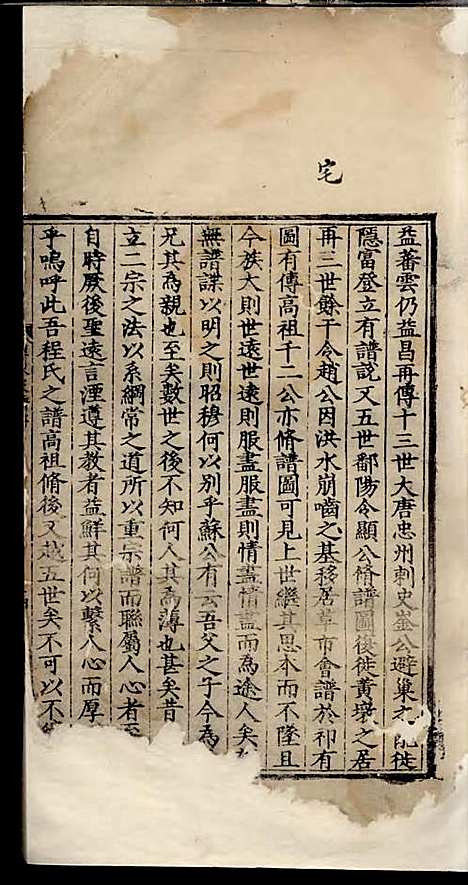 宅
益蕃雲仍益昌再傳十三世大唐忠州刺史釜公避巢之亂徙
隱富登立有譜說又五世鄱陽令顯公脩譜圖後徙黃墩之居
再三世餘干令趙公因洪水崩嚙之基移居草市會譜於祁有
圖有傳高祖千二公亦脩譜圖可見上世繼其思本而不墜且
今族大則世遠世遠則服盡服盡則情盡情盡而為途人矣
無譜諜以明之則昭穆何以別乎蘇公有云吾父之子今為
兄其為親也至矣數世之後不知何人其為薄也甚矣昔
立二宗之法以系綱常之道所以重宗譜而聯屬人心者至
自時厥後聖遠言湮導其教者益鮮其何以繫人心而厚
乎嗚呼此吾程氏之譜高祖脩後又越五世矣不可以不